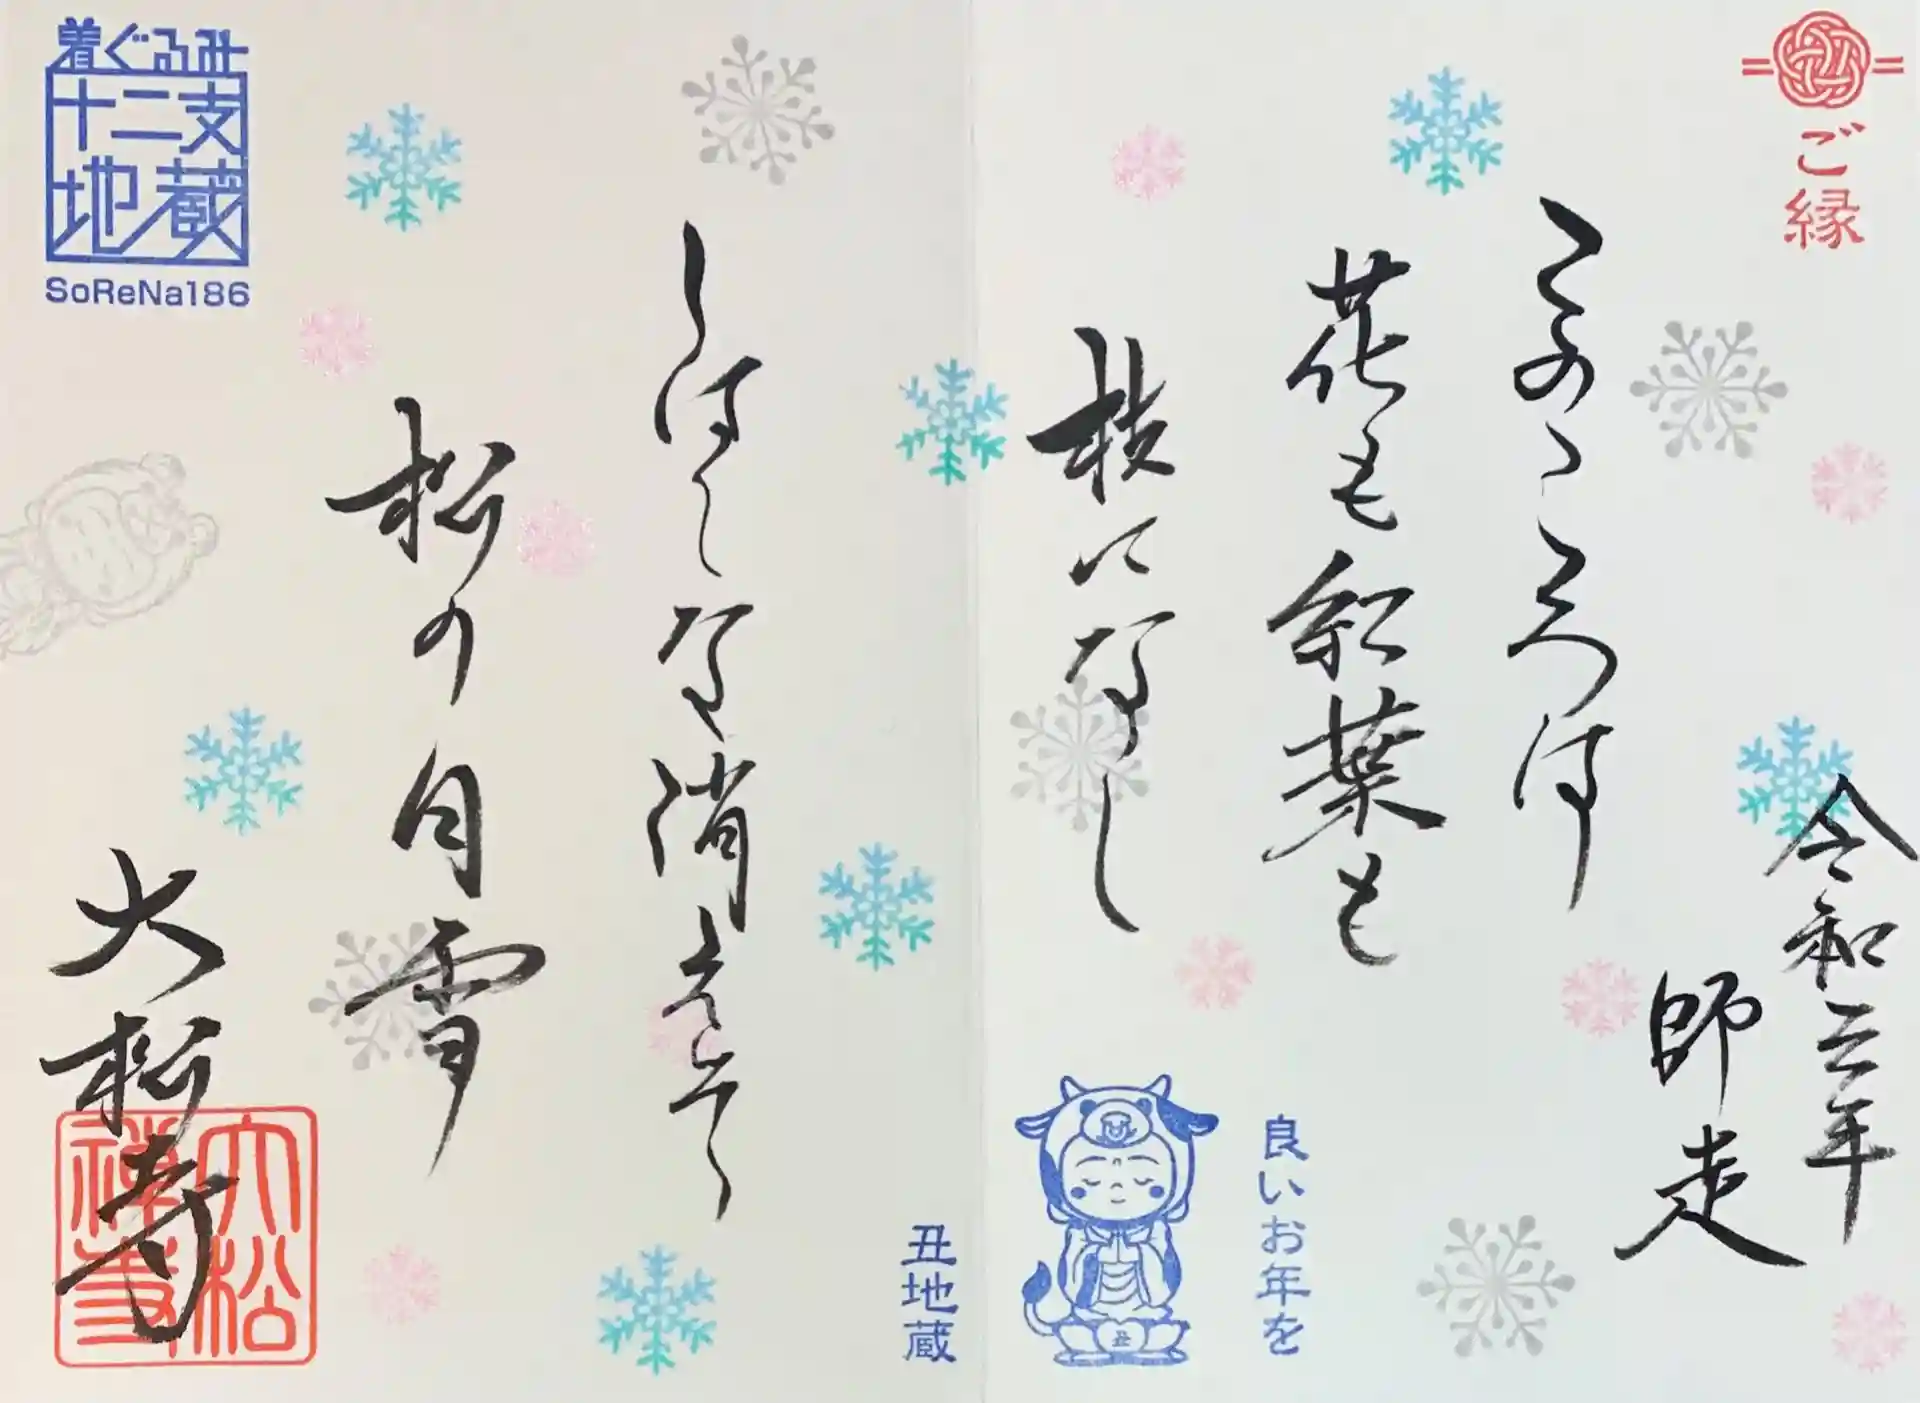 ご縁
令和三年
師走
このころは
花も紅葉も
枝になし
良いお年を
丑
丑地蔵
しはしな消えそ
松の白雪
着ぐるみ
十二支
地蔵
SoReNa186
大松寺
大松
禅寺